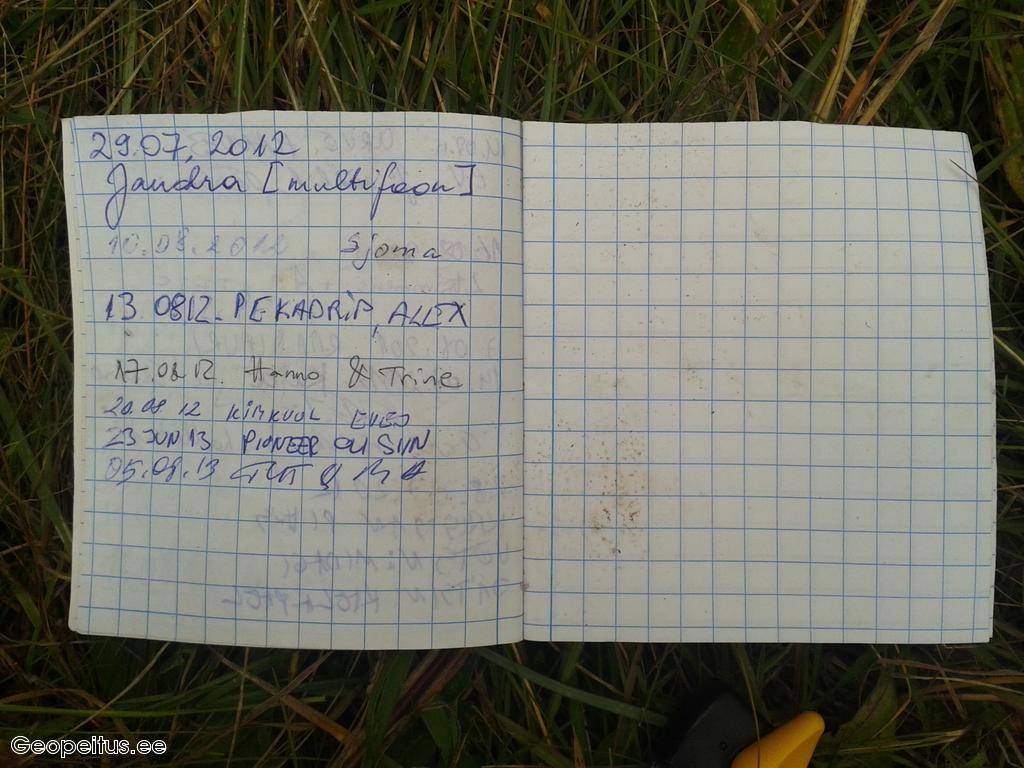 29.07.2012
Jaudra [multifoon]
10.08.2012 Sjoma
13.0812. PEKADRIP, ALLEX
17.08.12. Hanno & Trine
20.08 12
23 JUN 13 PIONEER ON SIIN
05.08.13
Geopeitus.ee